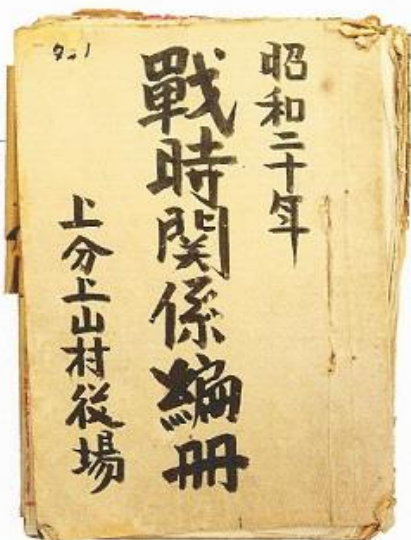 昭和二十年
戰時関係編冊
上分上山村役場